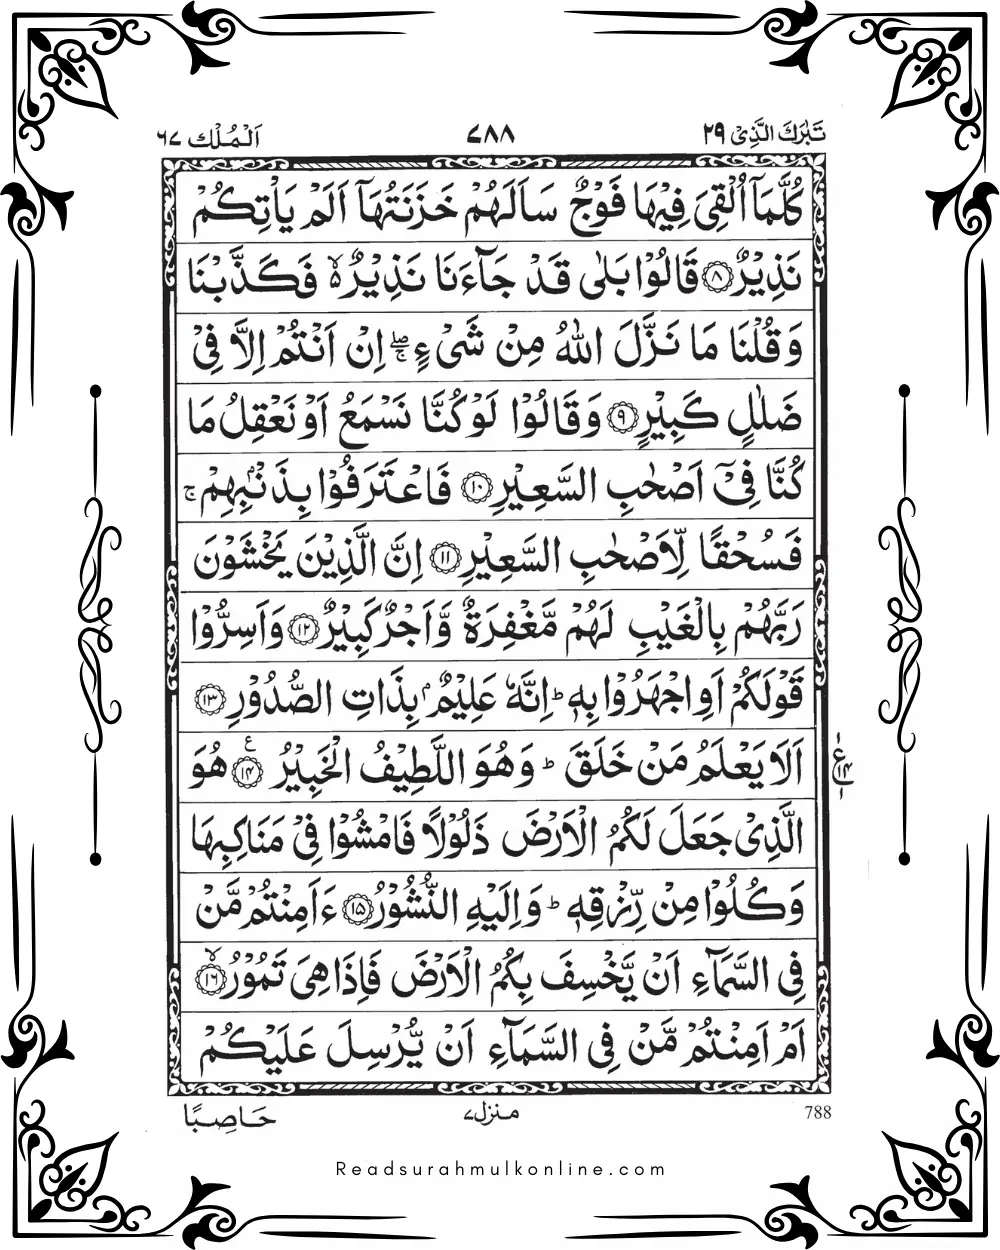 تَبٰرَكَ الَّذِیْ ۲۹
۷۸۸
اَلْمُلْك ۶۷
كُلَّمَاۤ اُلْقِیَ فِیْهَا فَوْجٌ سَاَلَهُمْ خَزَنَتُهَاۤ اَلَمْ یَاْتِكُمْ
نَذِیْرٌ ۝۸ قَالُوْا بَلٰی قَدْ جَآءَنَا نَذِیْرٌ ۙ۬ فَكَذَّبْنَا
وَ قُلْنَا مَا نَزَّلَ اللّٰهُ مِنْ شَیْءٍ ۖۚ اِنْ اَنْتُمْ اِلَّا فِیْ
ضَلٰلٍ كَبِیْرٍ ۝۹ وَ قَالُوْا لَوْ كُنَّا نَسْمَعُ اَوْ نَعْقِلُ مَا
كُنَّا فِیْۤ اَصْحٰبِ السَّعِیْرِ ۝۱۰ فَاعْتَرَفُوْا بِذَنْۢبِهِمْ ۚ
فَسُحْقًا لِّاَصْحٰبِ السَّعِیْرِ ۝۱۱ اِنَّ الَّذِیْنَ یَخْشَوْنَ
رَبَّهُمْ بِالْغَیْبِ لَهُمْ مَّغْفِرَةٌ وَّ اَجْرٌ كَبِیْرٌ ۝۱۲ وَ اَسِرُّوْا
قَوْلَكُمْ اَوِ اجْهَرُوْا بِهٖ ؕ اِنَّهٗ عَلِیْمٌۢ بِذَاتِ الصُّدُوْرِ ۝۱۳
اَلَا یَعْلَمُ مَنْ خَلَقَ ؕ وَ هُوَ اللَّطِیْفُ الْخَبِیْرُ ۝۱۴ ع هُوَ
ع ۱ ۱۴ ۱
الَّذِیْ جَعَلَ لَكُمُ الْاَرْضَ ذَلُوْلًا فَامْشُوْا فِیْ مَنَاكِبِهَا
وَ كُلُوْا مِنْ رِّزْقِهٖ ؕ وَ اِلَیْهِ النُّشُوْرُ ۝۱۵ ءَاَمِنْتُمْ مَّنْ
فِی السَّمَآءِ اَنْ یَّخْسِفَ بِكُمُ الْاَرْضَ فَاِذَا هِیَ تَمُوْرُ ۝۱۶ ۙ
اَمْ اَمِنْتُمْ مَّنْ فِی السَّمَآءِ اَنْ یُّرْسِلَ عَلَیْكُمْ
788
منزل ۷
حَاصِبًا
Readsurahmulkonline.com